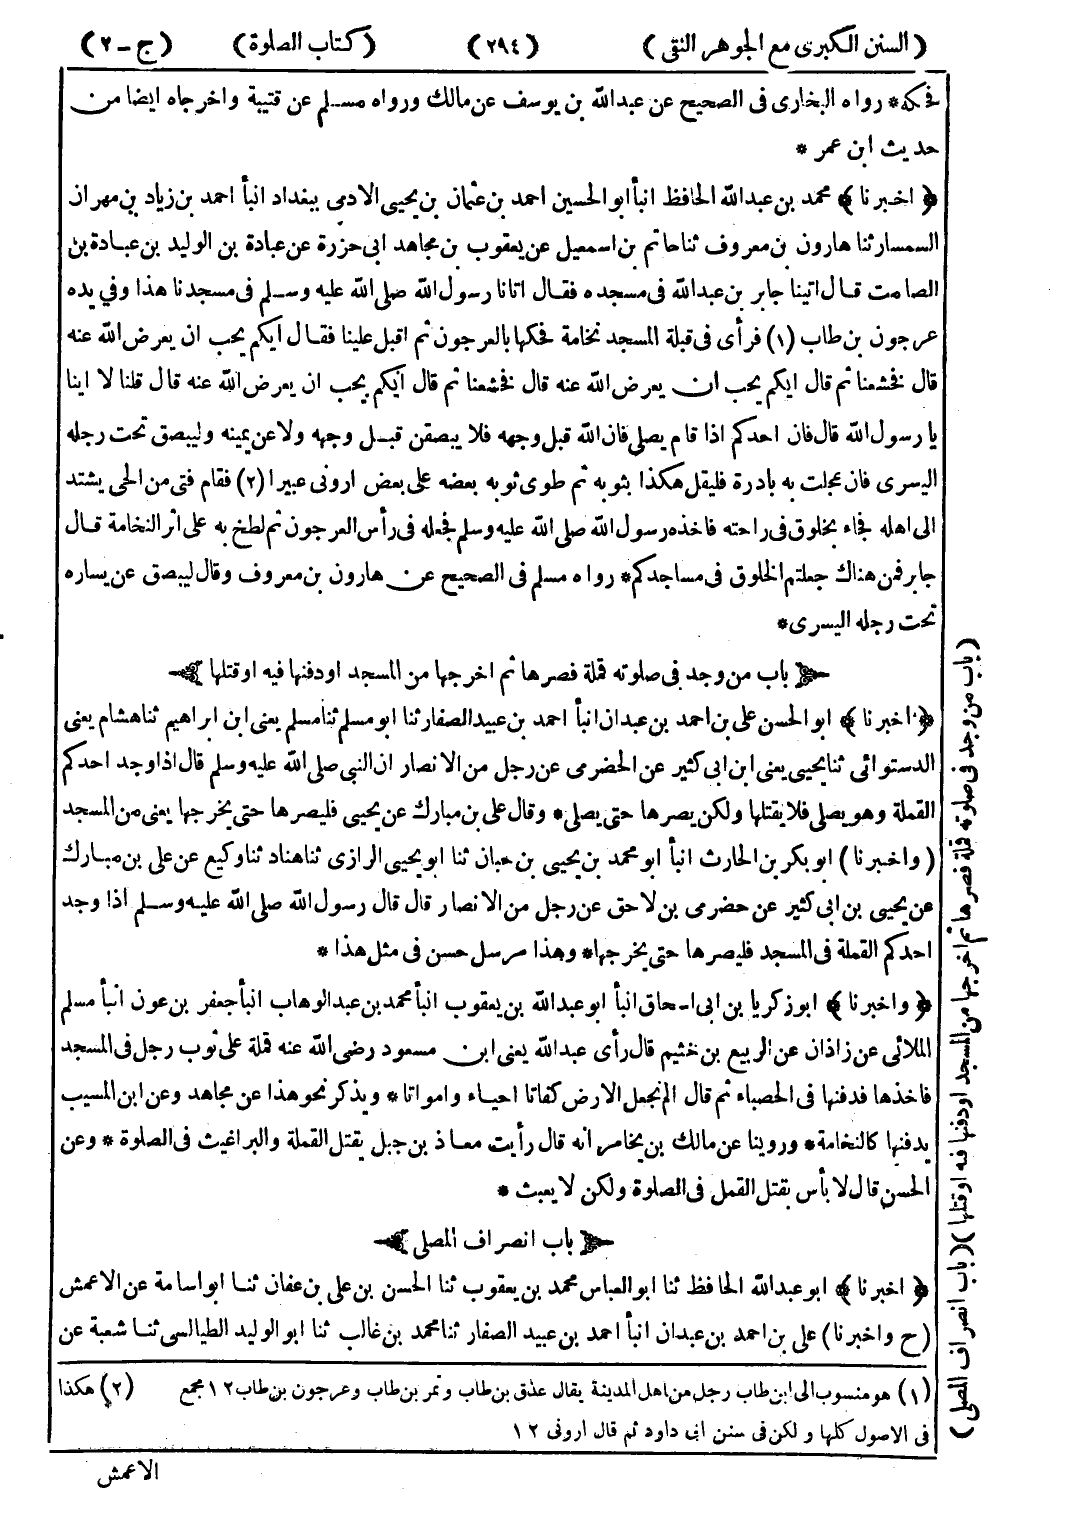 ( السنن الكبرى مع الجوهر النقى ) ( ٢٩٤ ) ( كتاب الصلوة ) ( ج - ٢ )
فحكه * رواه البخارى فى الصحيح عن عبدالله بن يوسف عن مالك ورواه مسلم عن قتيبة واخرجاه ايضا من
حديث ابن عمر *
﴿ اخبرنا ﴾ محمد بن عبدالله الحافظ انبأ ابو الحسين احمد بن عثمان بن يحيى الادمى ببغداد انبأ احمد بن زياد بن مهران
السمسار ثنا هارون بن معروف ثنا حاتم بن اسمعيل عن يعقوب بن مجاهد ابى حزرة عن عبادة بن الوليد بن عبادة بن
الصامت قال اتينا جابر بن عبدالله فى مسجده فقال اتانا رسول الله صلى الله عليه وسلم فى مسجدنا هذا وفي يده
عرجون بن طاب (١) فرأى فى قبلة المسجد نخامة فحكها بالعرجون ثم اقبل علينا فقال ايكم يحب ان يعرض الله عنه
قال فخشعنا ثم قال ايكم يحب ان يعرض الله عنه قال فخشعنا ثم قال ايكم يحب ان يعرض الله عنه قال قلنا لا اينا
يا رسول الله قال فان احدكم اذا قام يصلى فان الله قبل وجهه فلا يبصقن قبل وجهه ولا عن يمينه وليبصق تحت رجله
اليسرى فان عجلت به بادرة فليقل هكذا بثوبه ثم طوى ثوبه بعضه على بعض ارونى عبيرا (٢) فقام فتى من الحى يشتد
الى اهله فجاء بخلوق فى راحته فاخذه رسول الله صلى الله عليه وسلم فجعله فى رأس العرجون ثم لطخ به على اثر النخامة قال
جابر فمن هناك جعلتم الخلوق فى مساجدكم * رواه مسلم فى الصحيح عن هارون بن معروف وقال ليبصق عن يساره
تحت رجله اليسرى *
باب من وجد فى صلوته قملة فصرها ثم اخرجها من المسجد او دفنها فيه او قتلها
﴿ اخبرنا ﴾ ابو الحسن على بن احمد بن عبدان انبأ احمد بن عبيد الصفار ثنا ابو مسلم ثنا مسلم يعنى ابن ابراهيم ثنا هشام يعنى
الدستوائى ثنا يحيى يعنى ابن ابى كثير عن الحضرمى عن رجل من الانصار ان النبى صلى الله عليه وسلم قال اذا وجد احدكم
القملة وهو يصلى فلا يقتلها ولكن يصرها حتى يصلى * وقال على بن مبارك عن يحيى فليصرها حتى يخرجها يعنى من المسجد
( واخبرنا ) ابو بكر بن الحارث انبأ ابو محمد بن يحيى بن حبان ثنا ابو يحيى الرازى ثنا هناد ثنا وكيع عن على بن مبارك
عن يحيى بن ابى كثير عن حضرمى بن لاحق عن رجل من الانصار قال قال رسول الله صلى الله عليه وسلم اذا وجد
احدكم القملة فى المسجد فليصرها حتى يخرجها * وهذا مرسل حسن فى مثل هذا *
﴿ واخبرنا ﴾ ابو زكريا بن ابى اسحاق انبأ ابو عبدالله بن يعقوب انبأ محمد بن عبدالوهاب انبأ جعفر بن عون انبأ مسلم
الملائى عن زاذان عن الربيع بن خثيم قال رأى عبدالله يعنى ابن مسعود رضى الله عنه قملة على ثوب رجل فى المسجد
فاخذها فدفنها فى الحصباء ثم قال الم نجعل الارض كفاتا احياء وامواتا * ويذكر نحو هذا عن مجاهد وعن ابن المسيب
يدفنها كالنخامة * وروينا عن مالك بن يخامر انه قال رأيت معاذ بن جبل يقتل القملة والبراغيث فى الصلوة * وعن
الحسن قال لا بأس بقتل القمل فى الصلوة ولكن لا يعبث *
باب انصراف المصلى
﴿ اخبرنا ﴾ ابو عبدالله الحافظ ثنا ابو العباس محمد بن يعقوب ثنا الحسن بن على بن عفان ثنا ابو اسامة عن الاعمش
( ح واخبرنا ) على بن احمد بن عبدان انبأ احمد بن عبيد الصفار ثنا محمد بن غالب ثنا ابو الوليد الطيالسى ثنا شعبة عن
(١) هو منسوب الى ابن طاب رجل من اهل المدينة يقال عذق بن طاب وتمر بن طاب وعرجون بن طاب ١٢ مجمع (٢) هكذا
فى الاصول كلها و لكن فى سنن ابى داود ثم قال ارونى ١٢
الاعمش
( باب من وجد فى صلوته قملة فصرها ثم اخرجها من المسجد او دفنها فيه او قتلها ) ( باب انصراف المصلى )